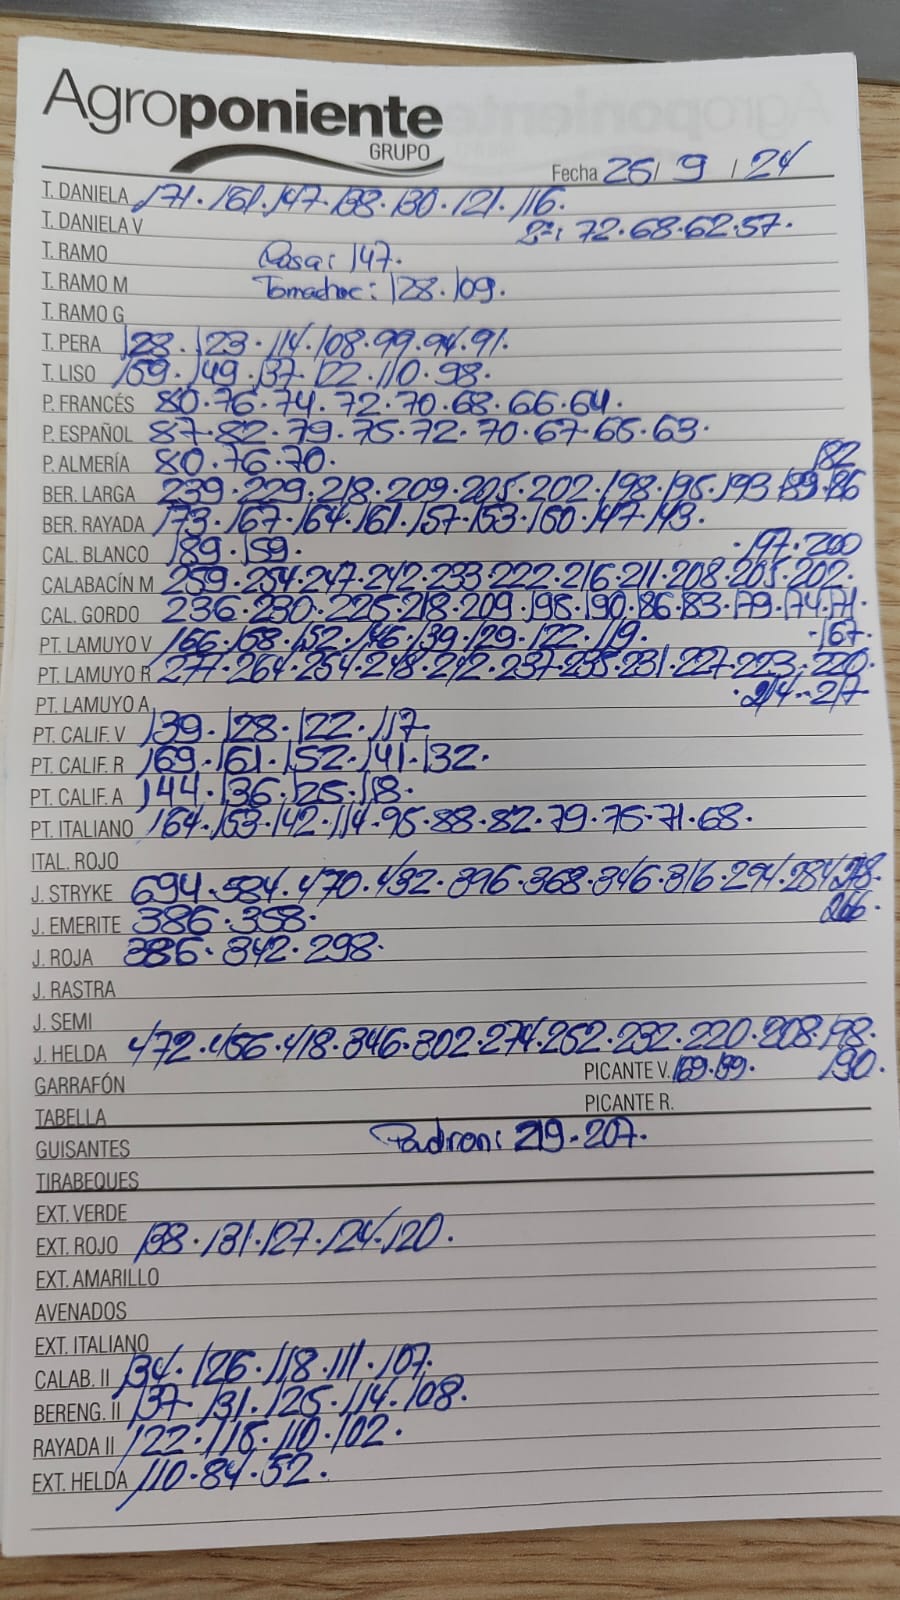 Agroponiente
GRUPO
Fecha 25/ 9 / 24
T. DANIELA 171. 161. 147. 138. 130. 121. 116.
T. DANIELA V 2ª: 72.68.62.57.
T. RAMO Rosa: 147.
T. RAMO M Tomachoc: 128. 109.
T. RAMO G
T. PERA 128. 123. 114. 108. 99. 94. 91.
T. LISO 159. 149. 137. 122. 110. 98.
P. FRANCÉS 80.76.74.72.70.68.66.64.
P. ESPAÑOL 87.82.79.75.72.70.67.65.63.
P. ALMERÍA 80.76.70. 182
BER. LARGA 239.229.218.209.205.202.198.195.193.189.186
BER. RAYADA 173.167.164.161.157.153.150.147.143.
CAL. BLANCO 189.159. .197.200
CALABACÍN M 259.254.247.242.233.222.216.211.208.205.202.
CAL. GORDO 236.230.225.218.209.195.190.186.183.179.174.171.
PT. LAMUYO V 166.158.152.146.139.129.122.119. .167.
PT. LAMUYO R 277.264.254.248.242.237.235.231.227.223.220.
PT. LAMUYO A .214.217
PT. CALIF. V 139.128.122.117.
PT. CALIF. R 169.161.152.141.132.
PT. CALIF. A 144.136.125.118.
PT. ITALIANO 164.153.142.114.95.88.82.79.75.71.68.
ITAL. ROJO
J. STRYKE 694.584.470.432.396.368.346.316.294.284.278.
J. EMERITE 386.358. 266.
J. ROJA 386.342.298.
J. RASTRA
J. SEMI
J. HELDA 472.456.418.346.302.274.252.232.220.208.198.
GARRAFÓN PICANTE V. 169.139. 190.
TABELLA PICANTE R.
GUISANTES Padron: 219.207.
TIRABEQUES
EXT. VERDE
EXT. ROJO 138.131.127.124.120.
EXT. AMARILLO
AVENADOS
EXT. ITALIANO
CALAB. II 134.126.118.111.107.
BERENG. II 137.131.125.114.108.
RAYADA II 122.115.110.102.
EXT. HELDA 110.84.52.